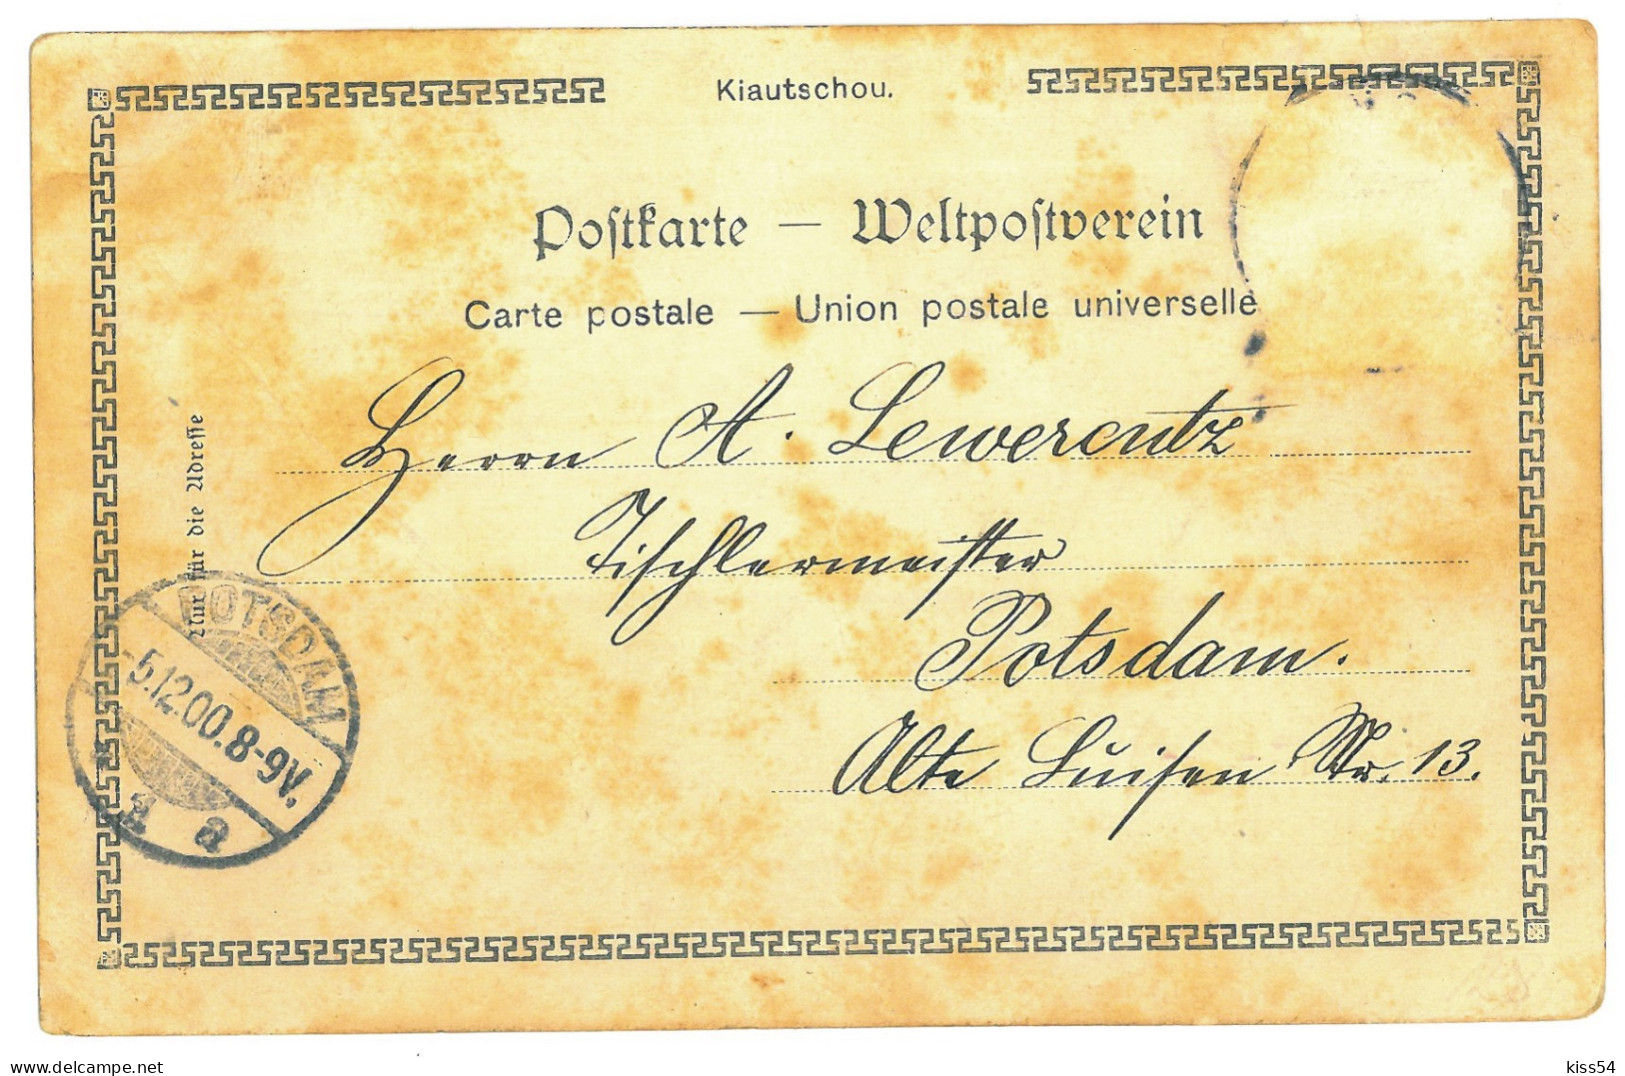 Kiautschou.
Postkarte — Weltpostverein
Carte postale — Union postale universelle
Nur für die Adresse
Herrn A. Lewerentz
Tischlermeister
Potsdam.
Alte Luisen Str. 13.
POTSDAM
-5.12.00.8-9V.
a
kiss54